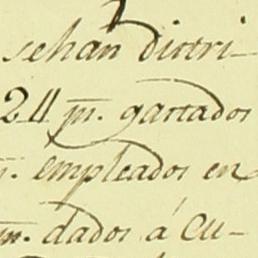 sehan distri-
24 m. gastados
m. empleados en
m. dados á Cu-